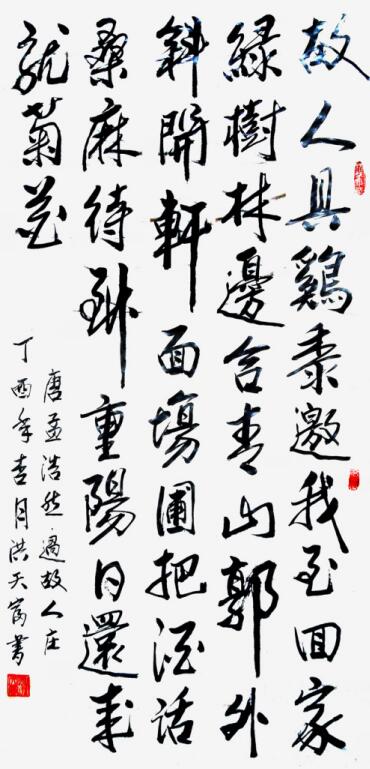 故人具鷄黍邀我至田家
緑樹村邊合青山郭外
斜開軒面場圃把酒話
桑麻待到重陽日還来
就菊花
唐孟浩然過故人庄
丁酉年杏月洪天富書